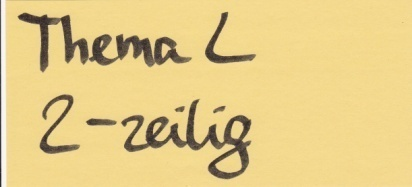 Thema L
2-zeilig